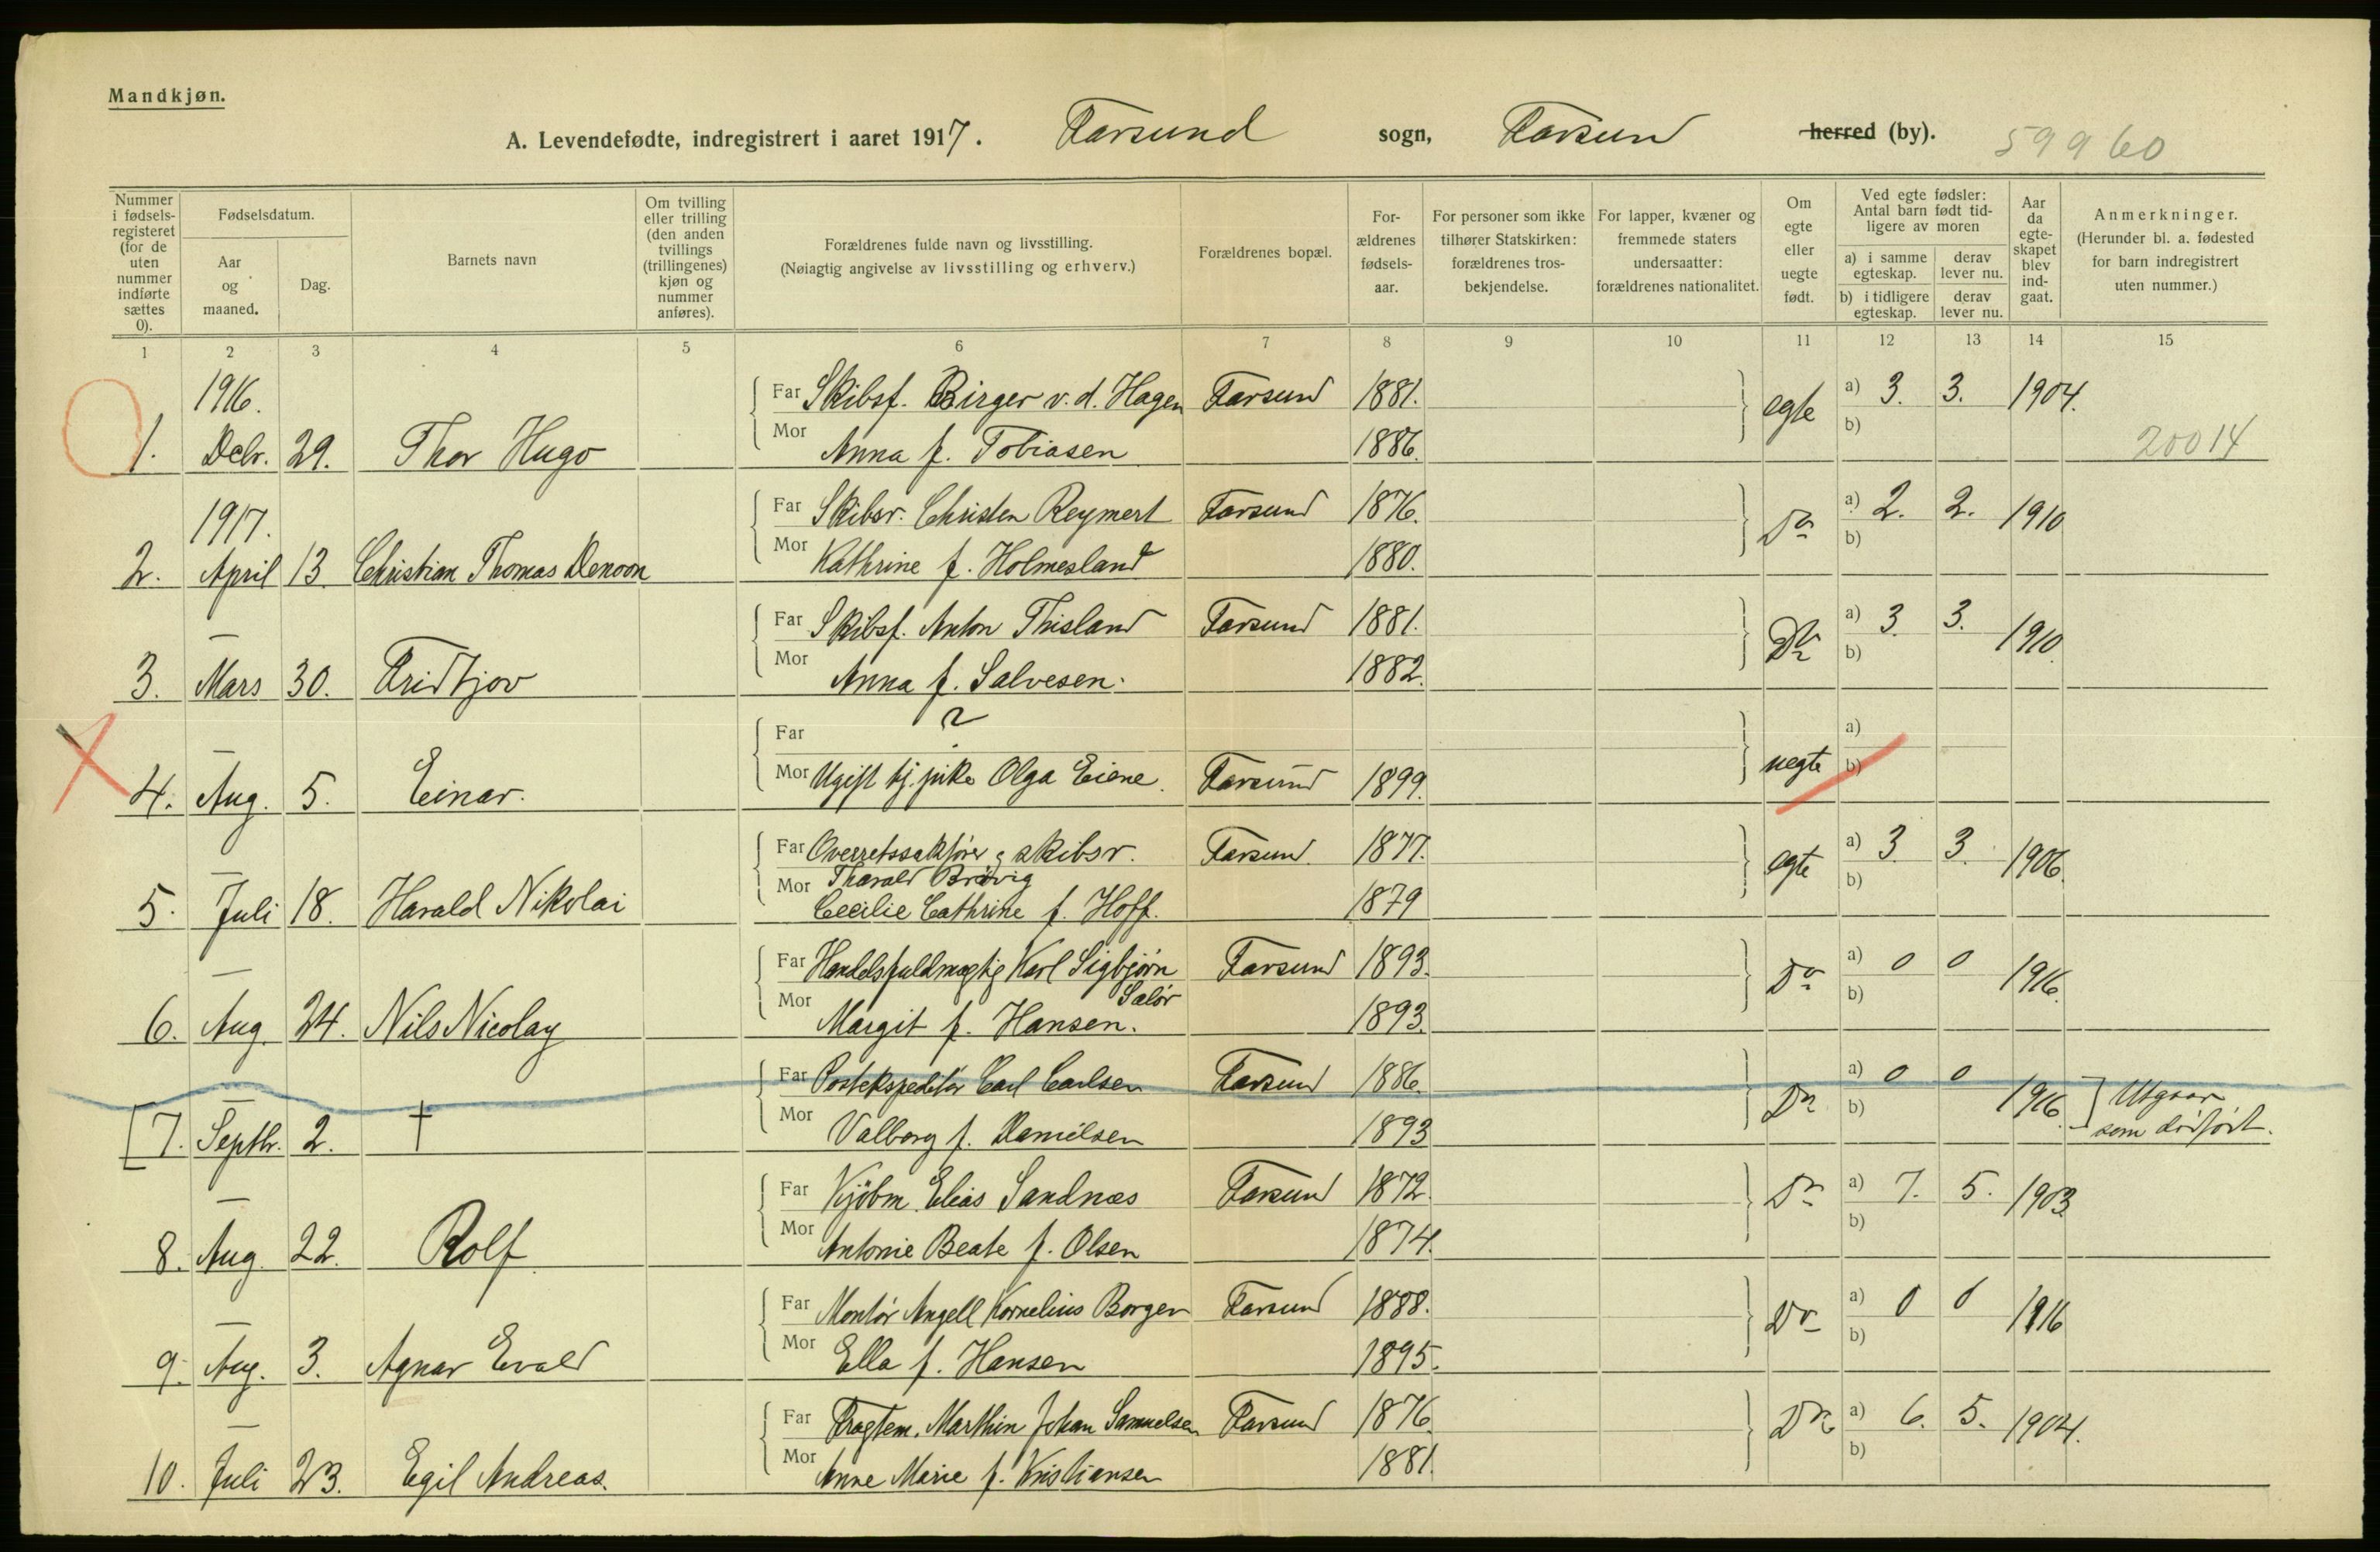 Mandkjøn.
A. Levendefødte, indregistrert i aaret 1917. Farsund sogn, Farsund herred (by). 59960
Nummer i fødsels-registeret (for de uten nummer indførte sættes 0).
Fødselsdatum.
Aar og maaned.
Dag.
Barnets navn
Om tvilling eller trilling (den anden tvillings (trillingenes) kjøn og nummer anføres).
Forældrenes fulde navn og livsstilling.
(Nøiagtig angivelse av livsstilling og erhverv.)
Forældrenes bopæl.
For-ældrenes fødsels-aar.
For personer som ikke tilhører Statskirken: forældrenes tros-bekjendelse.
For lapper, kvæner og fremmede staters undersaatter: forældrenes nationalitet.
Om egte eller uegte født.
Ved egte fødsler: Antal barn født tid-ligere av moren
a) i samme egteskap.
derav lever nu.
b) i tidligere egteskap.
derav lever nu.
Aar da egte-skapet blev ind-gaat.
Anmerkninger.
(Herunder bl. a. fødested for barn indregistrert uten nummer.)
1 2 3 4 5 6 7 8 9 10 11 12 13 14 15
1916.
Far Skibsf. Birger v. d. Hagen Farsund 1881. egte a) 3. 3. 1904.
1. Debr. 29. Thor Hugo Mor Anna f. Tobiasen 1886. b) 20014
1917.
Far Skibsr. Christen Reymert Farsund 1876. Do a) 2. 2. 1910
2. April 13 Christian Thomas Denoon Mor Kathrine f. Holmesland 1880. b)
Far Skibsf. Anton Thisland Farsund 1881. Do a) 3. 3. 1910
3. — Mars 30. Fridtjov Mor Anna f. Salvesen. 1882. b)
Far ? a)
4. — Aug. 5. Einar. Mor Ugift tj. pike Olga Eiene. Farsund 1899. uegte b)
Far Overretssakfører & skibsr. Farsund 1877. egte a) 3 3. 1906.
Tharald Brøvig
5. — Juli 18. Harald Nikolai Mor Cecilie Cathrine f. Hoff. 1879 b)
Far Handelsfuldmægtig Karl Sigbjørn Farsund 1893. Do a) 0 0 1916.
Salör
6. — Aug. 24. Nils Nicolay Mor Margit f. Hansen. 1893. b)
Far Postekspeditör Carl Carlsen Farsund 1886. Do a) 0 0 1916. ] Utgaar
[7. — Septbr. 2. † Mor Valborg f. Danielsen 1893 b) som dødfødt.
Far Kjöbm. Elias Sandnæs Farsund 1872. Do a) 7. 5. 1903.
8. — Aug. 22. Rolf Mor Antonie Beate f. Olsen 1874. b)
Far Montör Angell Kornelius Borgen Farsund 1888. Do a) 0 0 1916
9. — Aug. 3. Agnar Evald Mor Ella f. Hansen 1895. b)
Far Fragtem. Marthin Johan Samuelsen Farsund 1876. Do a) 6. 5. 1904.
10. — Juli 23. Egil Andreas. Mor Anne Marie f. Kristiansen 1881. b)